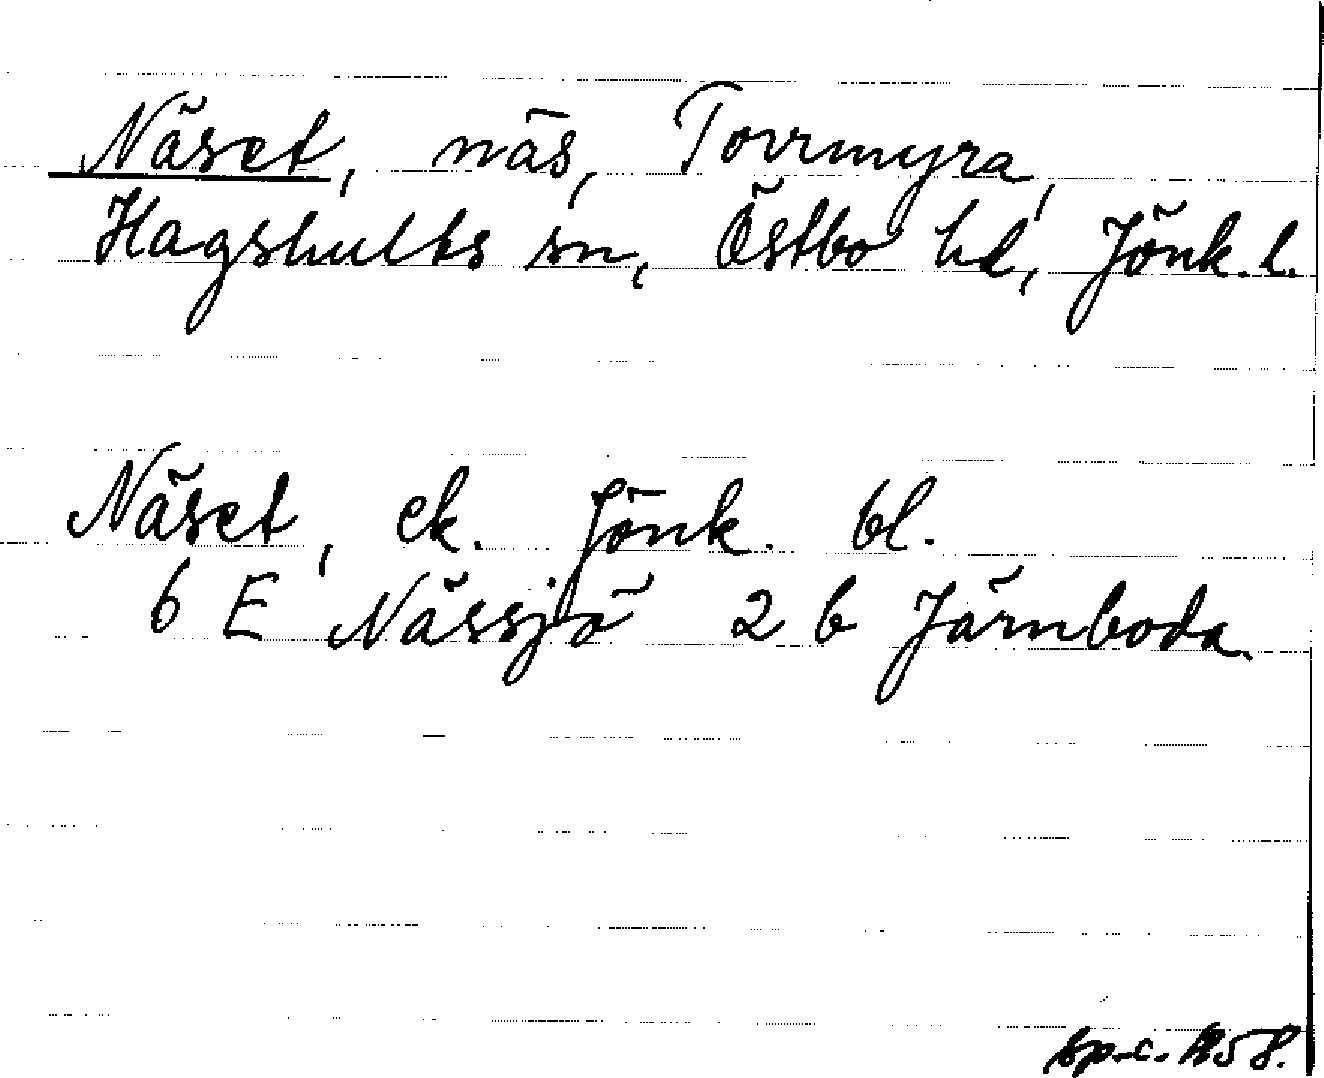 Näset, näs, Torrmyra,
Hagshults sn, Östbo hd, Jönk. l.
Näset, ek. Jönk. bl.
6 E Nässjö 2 b Järnboda.